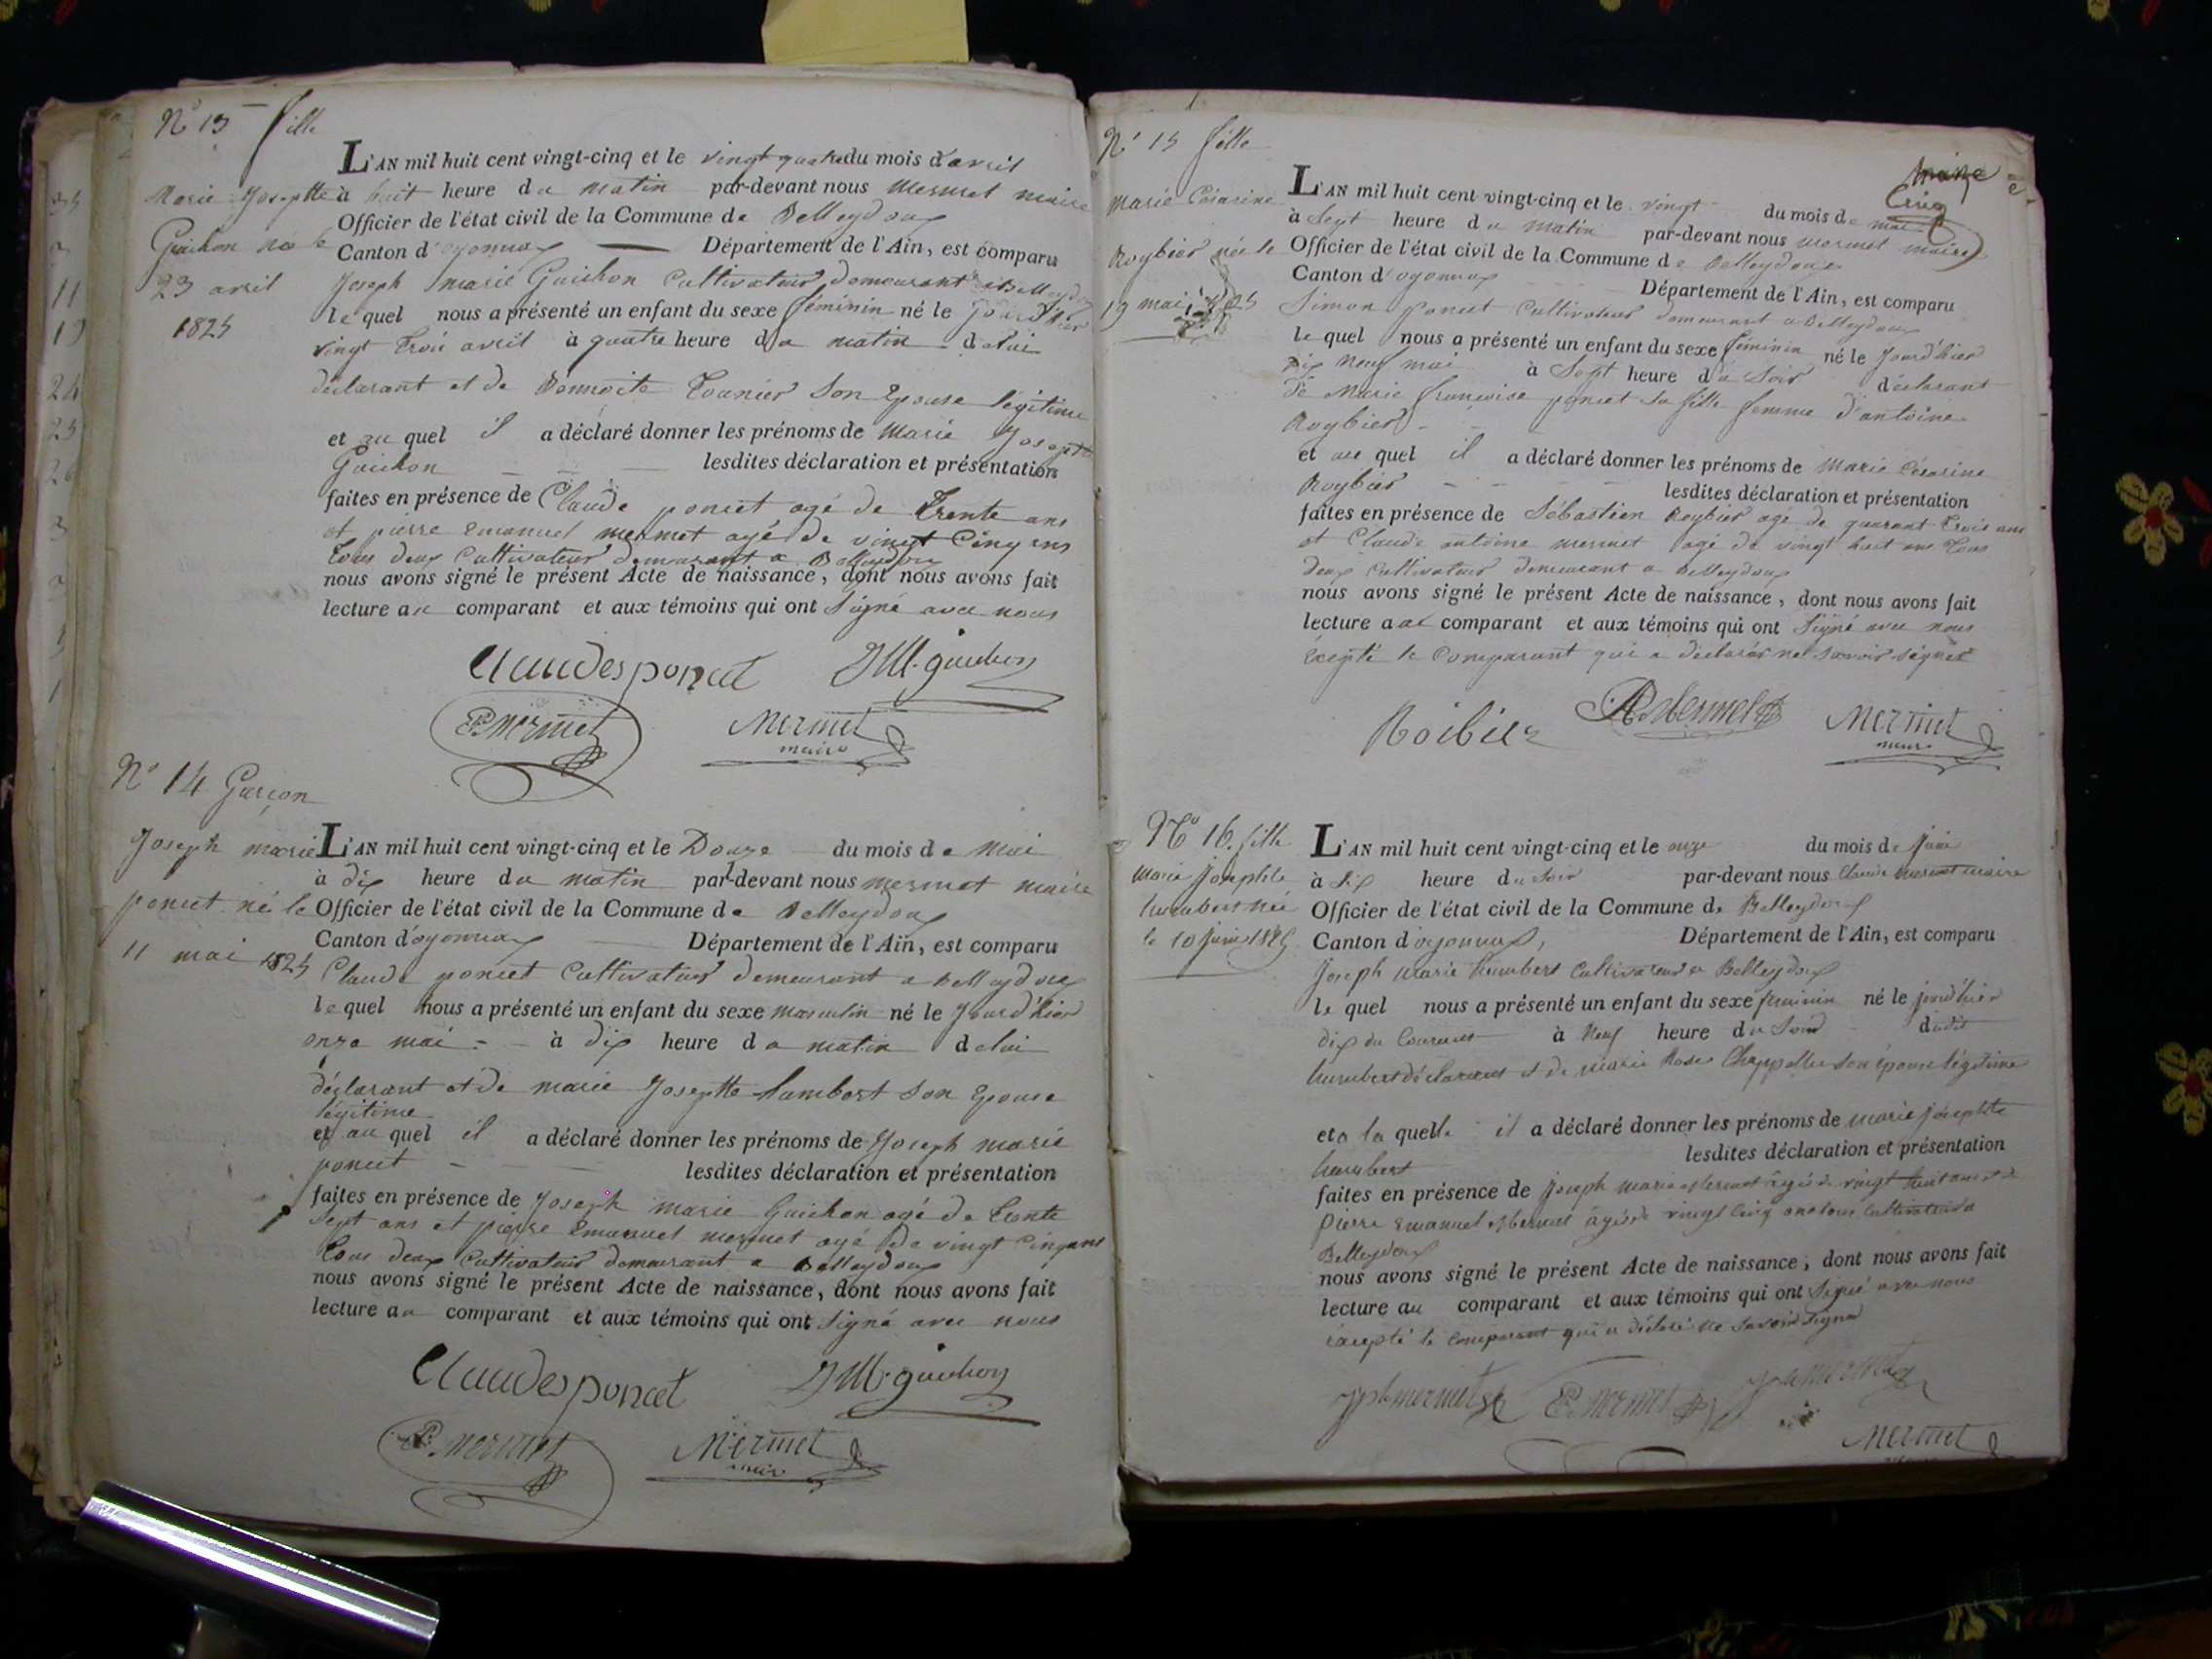 N° 13 fille
Marie Josephte
Guichon née le
23 avril
1825
L'AN mil huit cent vingt-cinq et le vingt quatre du mois d'avril
à huit heure du matin par-devant nous mermet maire
Officier de l'état civil de la Commune de Belleydoux
Canton d'oyonnax Département de l'Ain, est comparu
Joseph marie Guichon Cultivateur demeurant a Belleydoux
le quel nous a présenté un enfant du sexe féminin né le Jourd'hier
vingt trois avril à quatre heure du matin de lui
déclarant et de Tournier Son Epouse légitime
et au quel il a déclaré donner les prénoms de Marie Josephte
Guichon lesdites déclaration et présentation
faites en présence de Claude poncet agé de trente ans
et pierre Emanuel mermet agé de vingt Cinq ans
tous deux Cultivateur demeurant a Belleydoux
nous avons signé le présent Acte de naissance, dont nous avons fait
lecture au comparant et aux témoins qui ont Signé avec nous
Claudes poncet JM. guichon
P. E mermet Mermet
maire
N° 14 Garçon
Joseph marie
poncet né le
11 mai 1825
L'AN mil huit cent vingt-cinq et le Douze du mois de Mai
à dix heure du matin par-devant nous mermet maire
Officier de l'état civil de la Commune de Belleydoux
Canton d'oyonnax Département de l'Ain, est comparu
Claude poncet Cultivateur demeurant a Belleydoux
le quel nous a présenté un enfant du sexe masculin né le Jourd'hier
onze mai à dix heure du matin de lui
déclarant et de marie Josephte humbert Son Epouse
légitime
et au quel il a déclaré donner les prénoms de Joseph marie
poncet lesdites déclaration et présentation
faites en présence de Joseph marie Guichon agé de trente
Sept ans et pierre Emanuel mermet agé de vingt Cinq ans
tous deux Cultivateur demeurant a Belleydoux
nous avons signé le présent Acte de naissance, dont nous avons fait
lecture au comparant et aux témoins qui ont Signé avec nous
Claudes poncet JM. guichon
P. E mermet Mermet
maire
N° 15 fille
Marie Césarine
Roybier née le
19 mai 1825
L'AN mil huit cent vingt-cinq et le vingt du mois de mai
à Sept heure du matin par-devant nous mermet maire
Officier de l'état civil de la Commune de Belleydoux
Canton d'oyonnax Département de l'Ain, est comparu
Simon poncet Cultivateur demeurant a Belleydoux
le quel nous a présenté un enfant du sexe féminin né le Jourd'hier
dix neuf mai à Sept heure du Soir déclarant
de Marie françoise poncet sa fille femme d'antoine
Roybier
et au quel il a déclaré donner les prénoms de Marie Césarine
Roybier lesdites déclaration et présentation
faites en présence de Sébastien Roybier agé de quarant trois ans
et Claude antoine mermet agé de vingt huit ans tous
deux Cultivateur demeurant a Belleydoux
nous avons signé le présent Acte de naissance, dont nous avons fait
lecture au comparant et aux témoins qui ont Signé avec nous
Excepté le Comparant qui a déclaré ne savoir signer
Roibier Mermet Mermet
maire
N° 16. fille
marie Josephte
humbert née
le 10 Juin 1825
L'AN mil huit cent vingt-cinq et le onze du mois de Juin
à Six heure du Soir par-devant nous Claude mermet maire
Officier de l'état civil de la Commune de Belleydoux
Canton d'oyonnax, Département de l'Ain, est comparu
Joseph marie humbert Cultivateur a Belleydoux
le quel nous a présenté un enfant du sexe feminin né le jourd'hier
dix du Courant à Neuf heure du Soir dudit
humbert déclarant et de marie Rose Chappelle son épouse légitime
et a la quelle il a déclaré donner les prénoms de marie josephte
humbert lesdites déclaration et présentation
faites en présence de Joseph marie Mermet âgé de vingt huit ans et de
pierre Emanuel Mermet âgé de vingt Cinq ans tous Cultivateurs a
Belleydoux
nous avons signé le présent Acte de naissance, dont nous avons fait
lecture au comparant et aux témoins qui ont Signé avec nous
excepté le Comparant qui a déclaré ne savoir signer
P. E mermet
Mermet